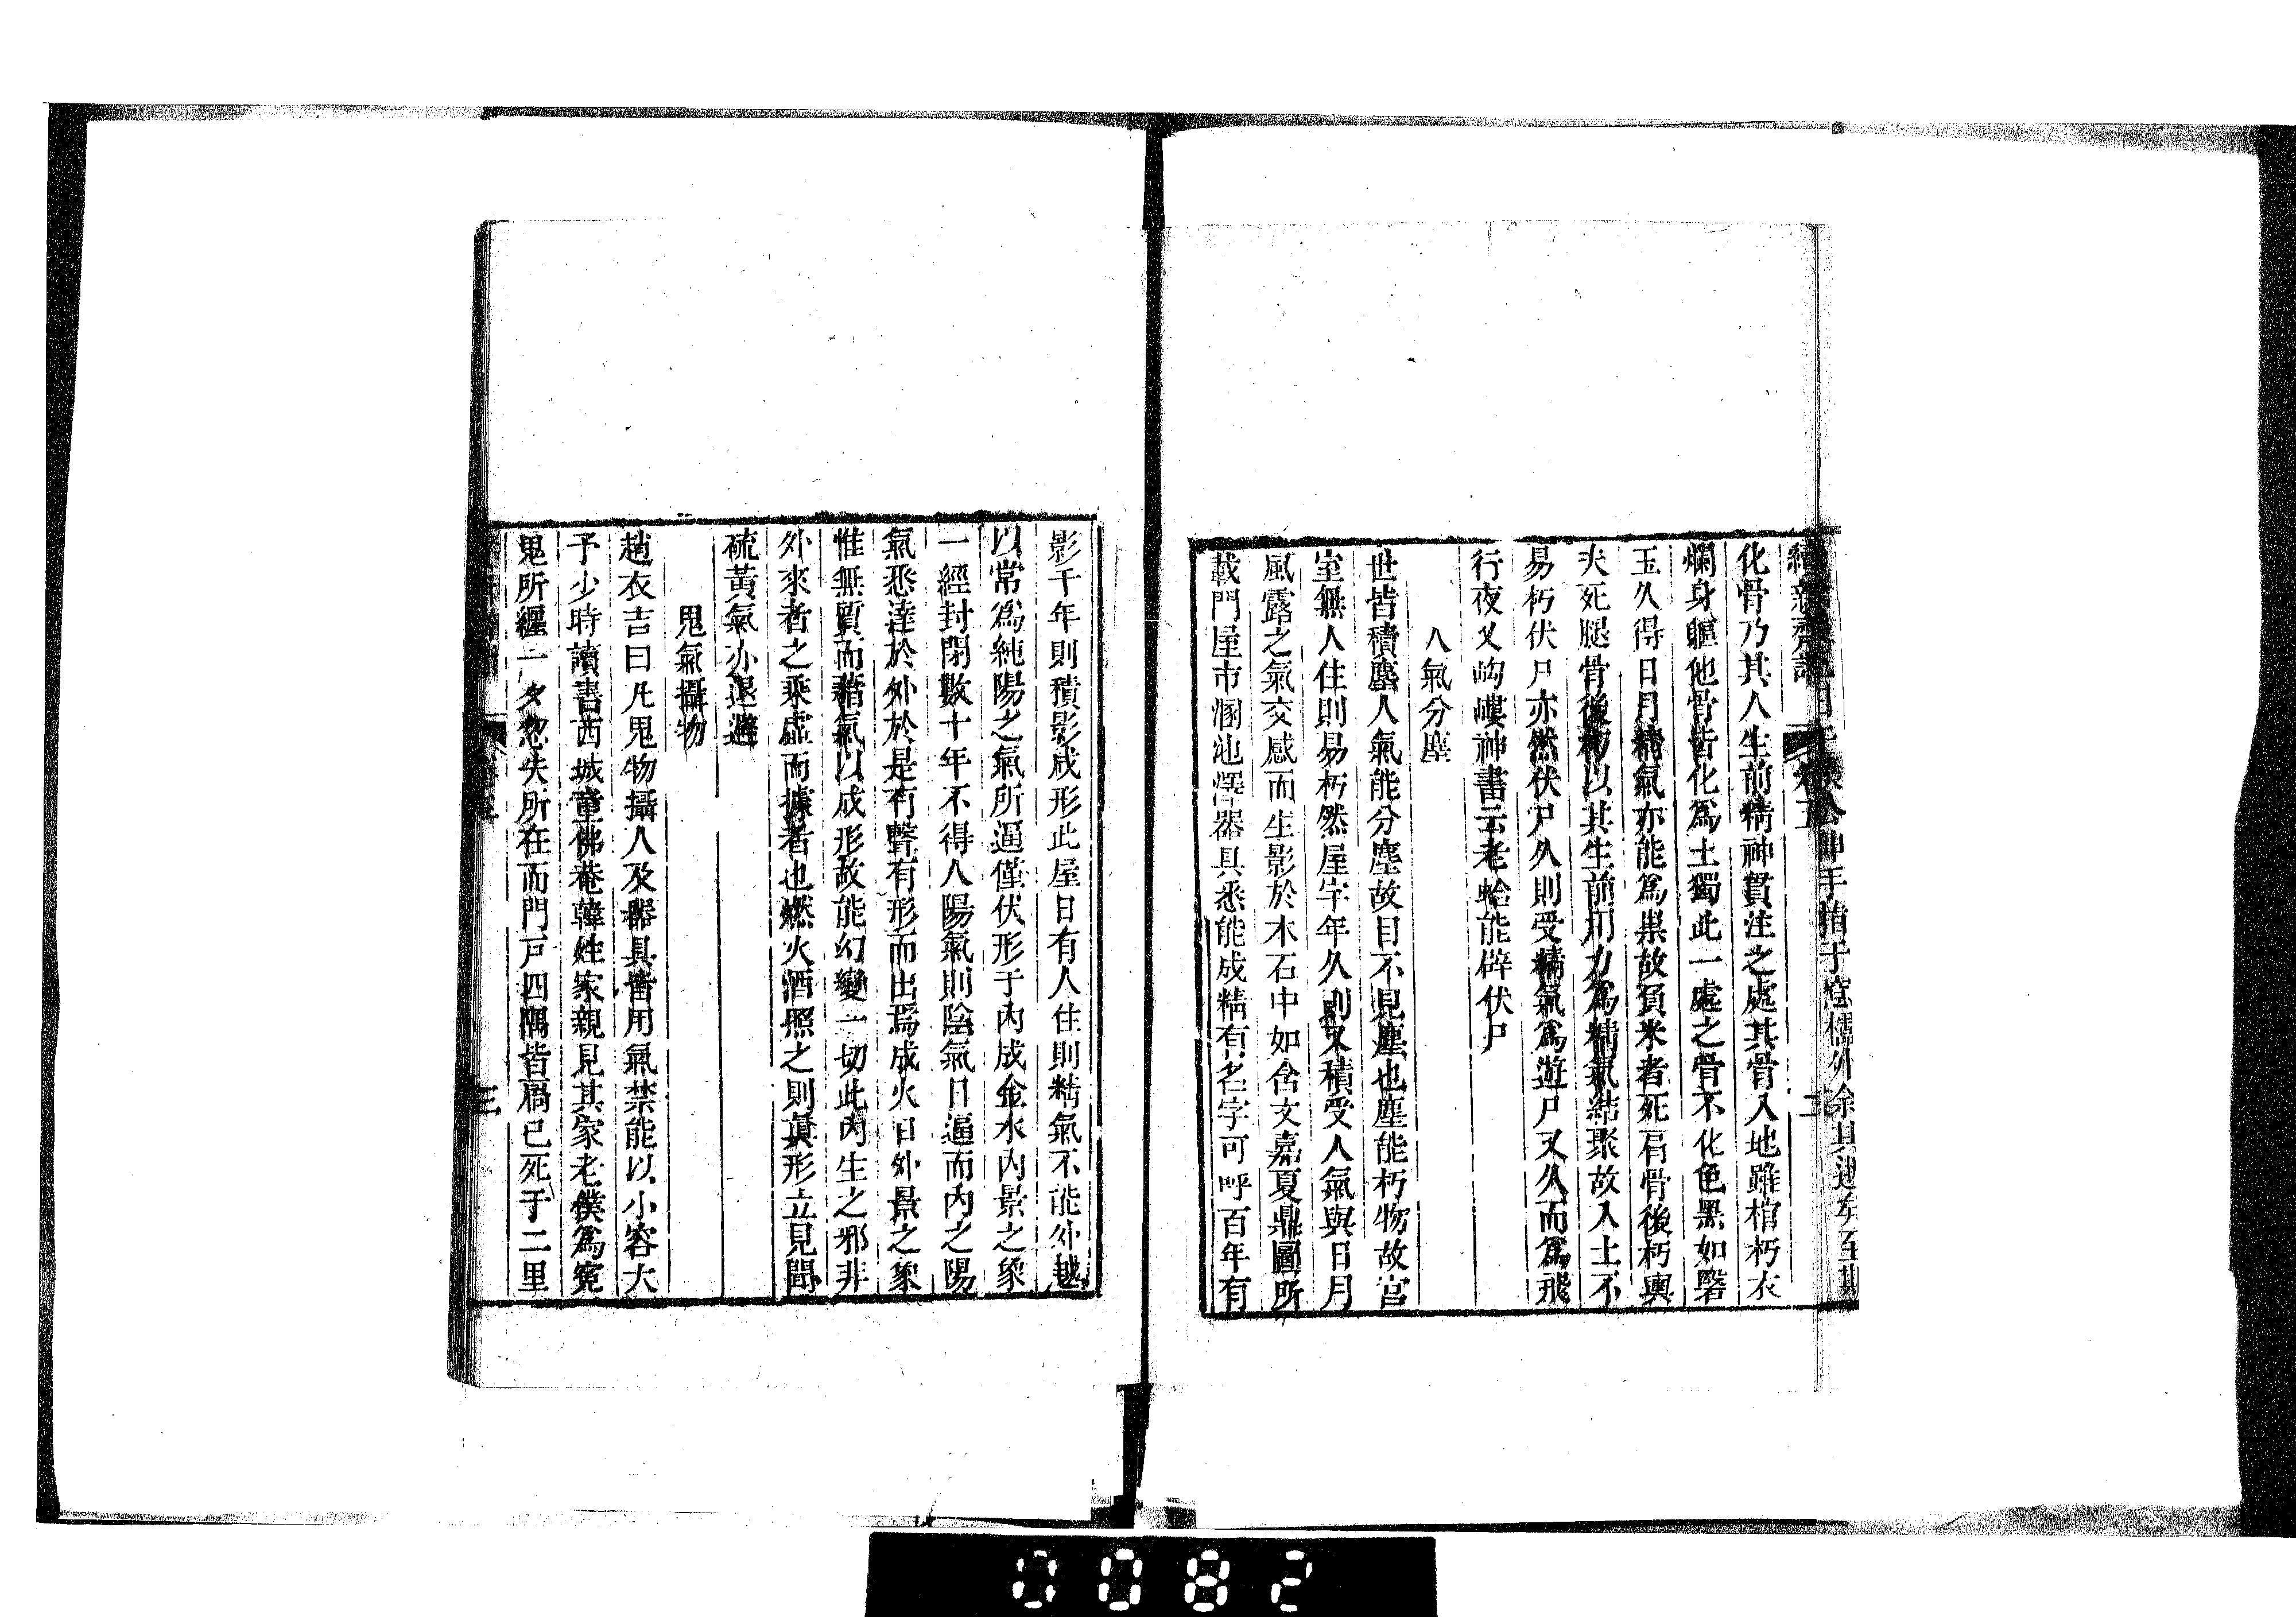 續新齊諧 卷五 二
化骨乃其人生前精神貫注之處其骨入地雖棺朽衣
爛身軀他骨皆化爲土獨此一處之骨不化色黑如瑿
玉久得日月精氣亦能爲祟故負米者死肩骨後朽輿
夫死腿骨後朽以其生前用力爲精氣結聚故入土不
易朽伏尸亦然伏尸久則受精氣爲遊尸又久而爲飛
行夜叉岣嶁神書云老蛤能辟伏尸
人氣分塵
世皆積塵人氣能分塵故目不見塵也塵能朽物故宫
室無人住則易朽然屋宇年久則又積受人氣與日月
風露之氣交感而生影於木石中如含文嘉夏鼎圖所
載門屋市溷池澤器具悉能成精有名字可呼百年有
影千年則積影成形此屋日有人住則精氣不能外越
以常爲純陽之氣所逼僅伏形于內成金水內景之象
一經封閉數十年不得人陽氣則陰氣日逼而內之陽
氣悉達於外於是有聲有形而出焉成火日外景之象
惟無質而藉氣以成形故能幻變一切此內生之邪非
外來者之乘虛而據者也燃火酒照之則眞形立見聞
硫黃氣亦退避
鬼氣攝物
趙衣吉曰凡鬼物攝人及器具皆用氣禁能以小容大
予少時讀書西城童佛菴韓姓家親見其家老僕爲寃
鬼所纏一夕忽失所在而門戸四隅皆扃已死于二里
三
0082